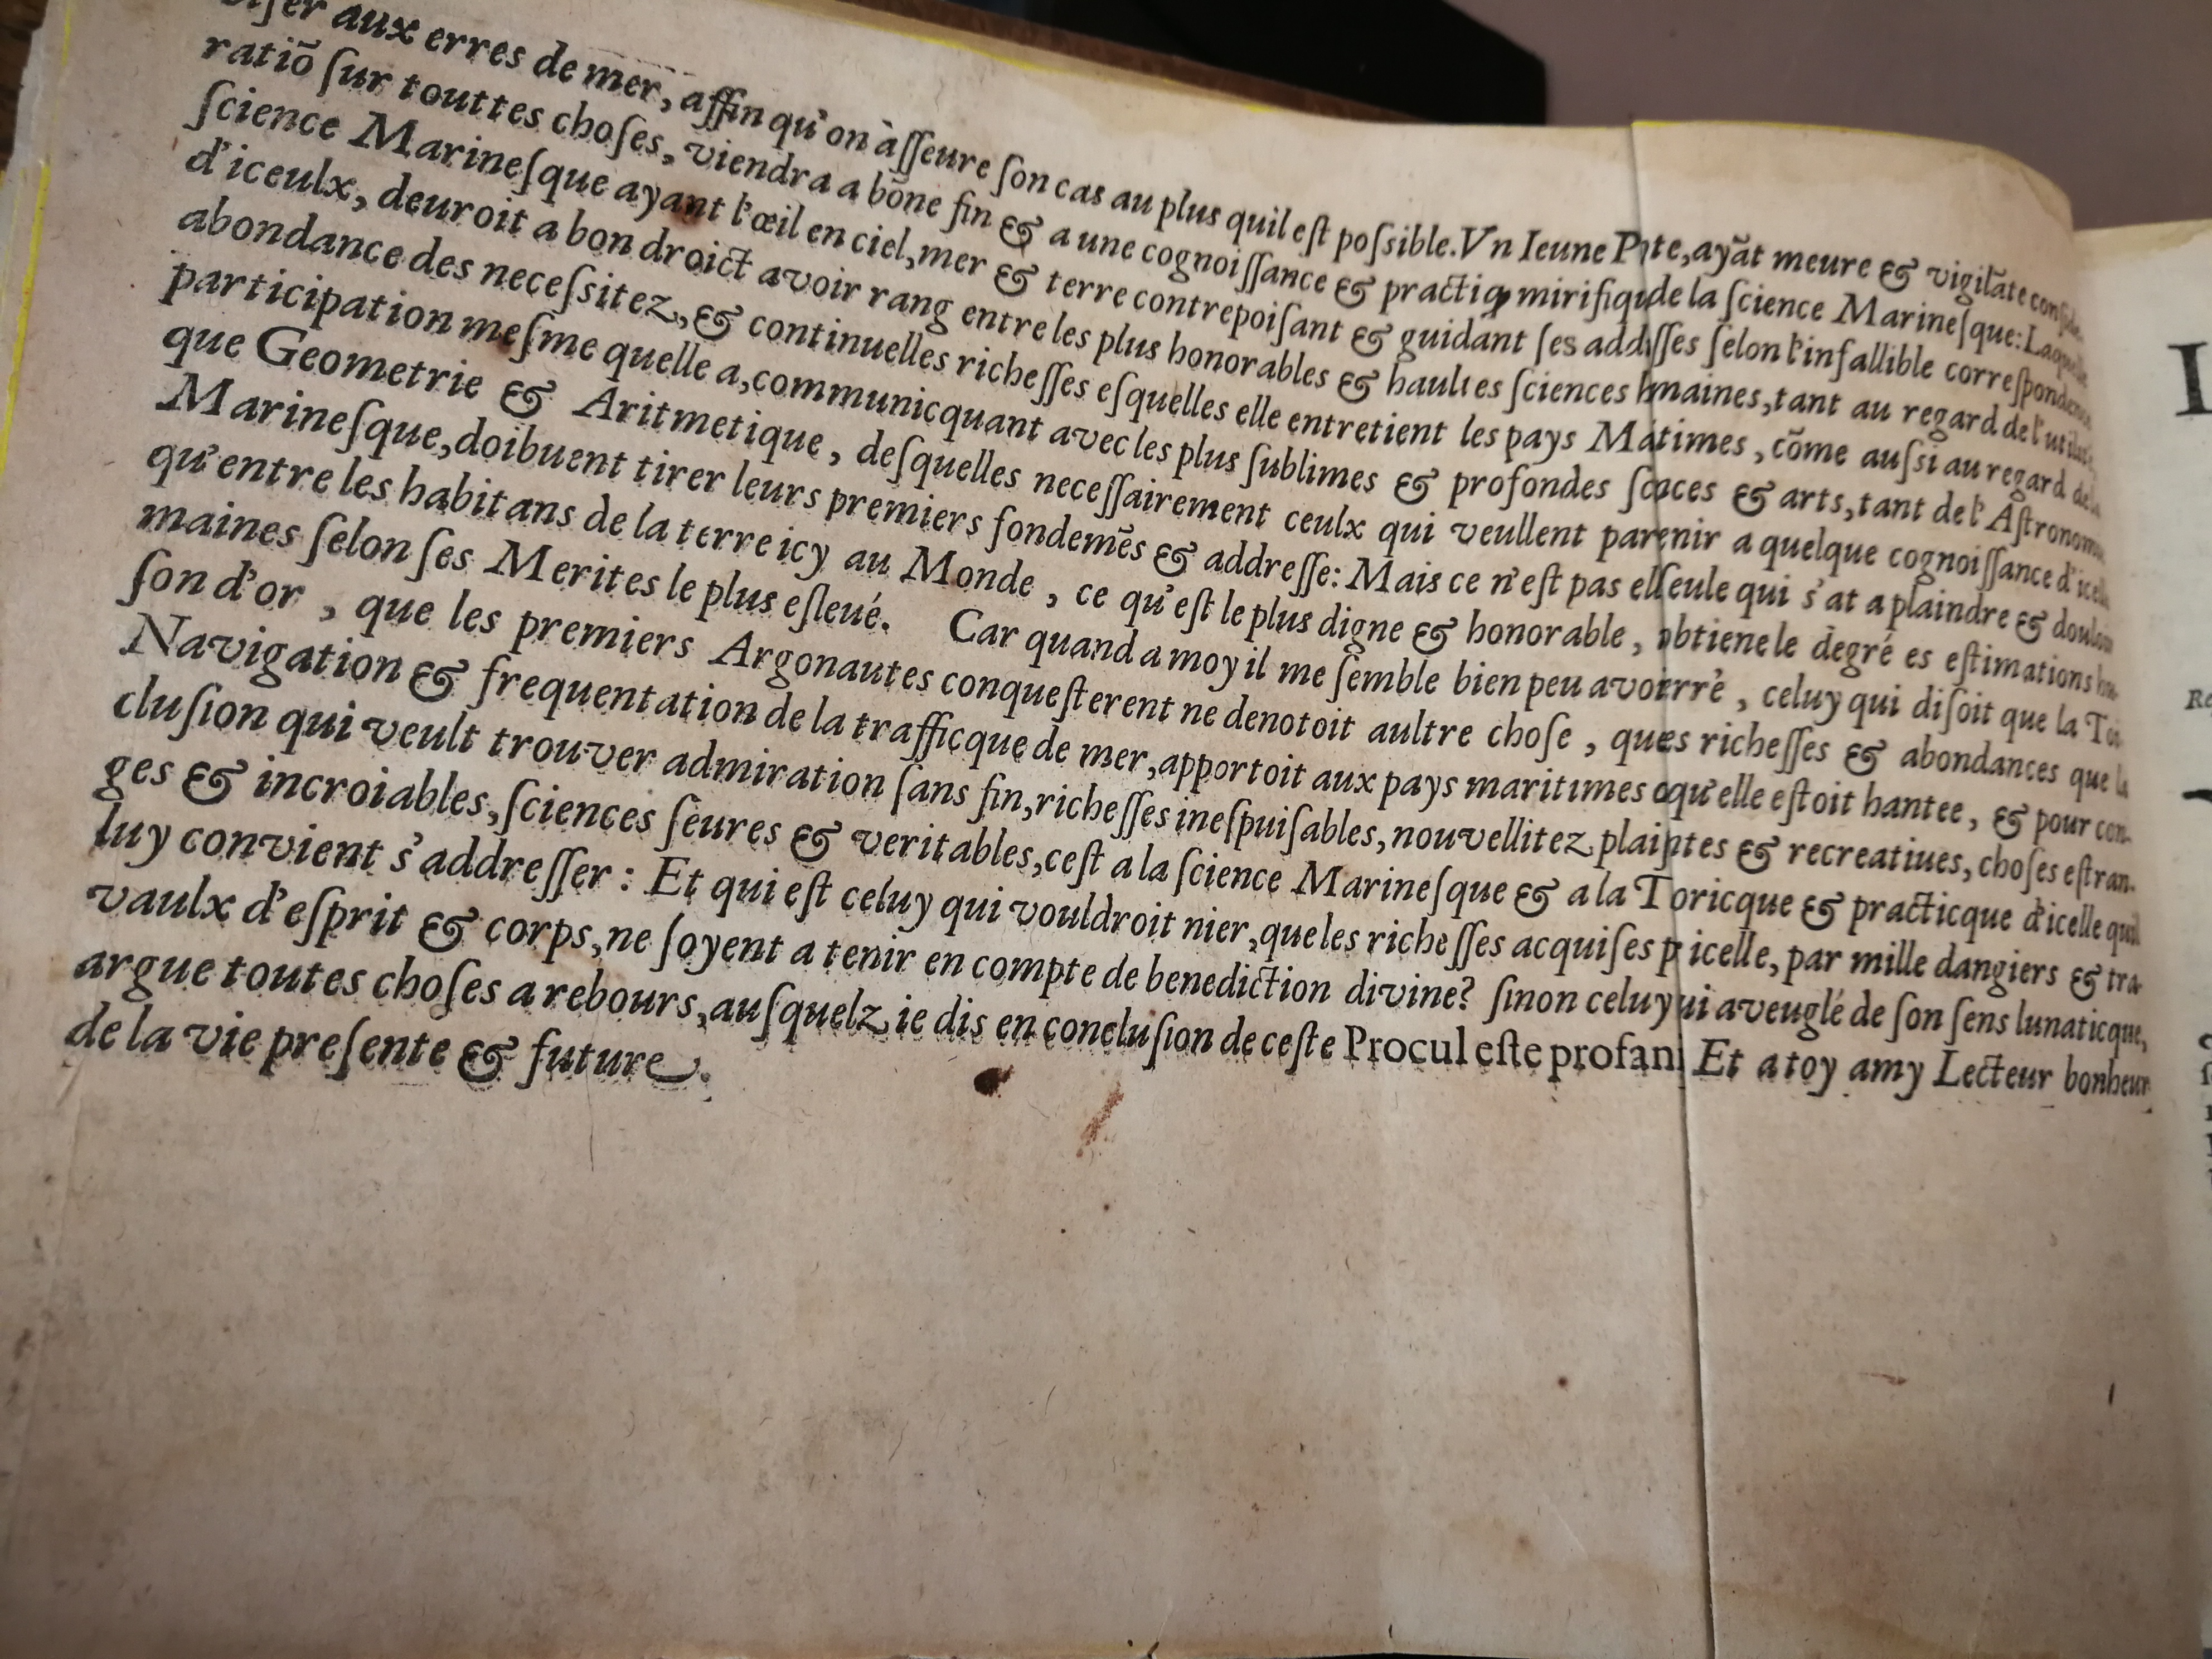 aux erres de mer, affin qu'on àſſeure ſon cas au plus quil eſt poſsible. Vn Ieune ayãt meure & vigilãte
ratiõ ſur touttes choſes, viendra a bõne fin & a une cognoiſſance & mirifique de la ſcience Marineſque: Laquelle
ſcience Marineſque ayant l'œil en ciel, mer & terre contrepoiſant & guidant ſes ſelon l'infallible correſpondence
d'iceulx, deuroit a bon droict avoir rang entre les plus honorables & haultes ſciences tant au regard de l'utilité
abondance des neceſsitez, & continuelles richeſſes eſquelles elle entretient les pays cõme auſsi au regard de la
participation meſme quelle a, communicquant avec les plus ſublimes & profondes & arts, tant de l'Aſtronomie
que Geometrie & Aritmetique, deſquelles neceſſairement ceulx qui veullent a quelque cognoiſſance d'icelle
Marineſque, doibuent tirer leurs premiers fondemẽs & addreſſe: Mais ce n'eſt pas qui a plaindre &
qu'entre les habitans de la terre icy au Monde, ce qu'eſt le plus digne & honorable, le degré es eſtimations
maines ſelon ſes Merites le plus eſleué. Car quand a moy il me ſemble bien peu celuy qui diſoit que la Toi-
ſon d'or, que les premiers Argonautes conqueſterent ne denotoit aultre choſe, richeſſes & abondances que la
Navigation & frequentation de la trafficque de mer, apportoit aux pays maritimes qu'elle eſtoit hantee, & pour con-
cluſion qui veult trouver admiration ſans fin, richeſſes ineſpuiſables, nouvellitez & recreatiues, choſes eſtran-
ges & incroiables, ſciences ſèures & veritables, ceſt a la ſcience Marineſque & a la & practicque d'icelle quil
luy convient s'addreſſer: Et qui eſt celuy qui vouldroit nier, que les richeſſes acquiſes icelle, par mille dangiers & tra-
vaulx d'eſprit & corps, ne ſoyent a tenir en compte de benediction divine? ſinon celuy aveuglé de ſon ſens lunaticque,
argue toutes choſes a rebours, auſquelz ie dis en concluſion de ceſte Procul eſte profani Et a toy amy Lecteur bonheur
de la vie preſente & future.